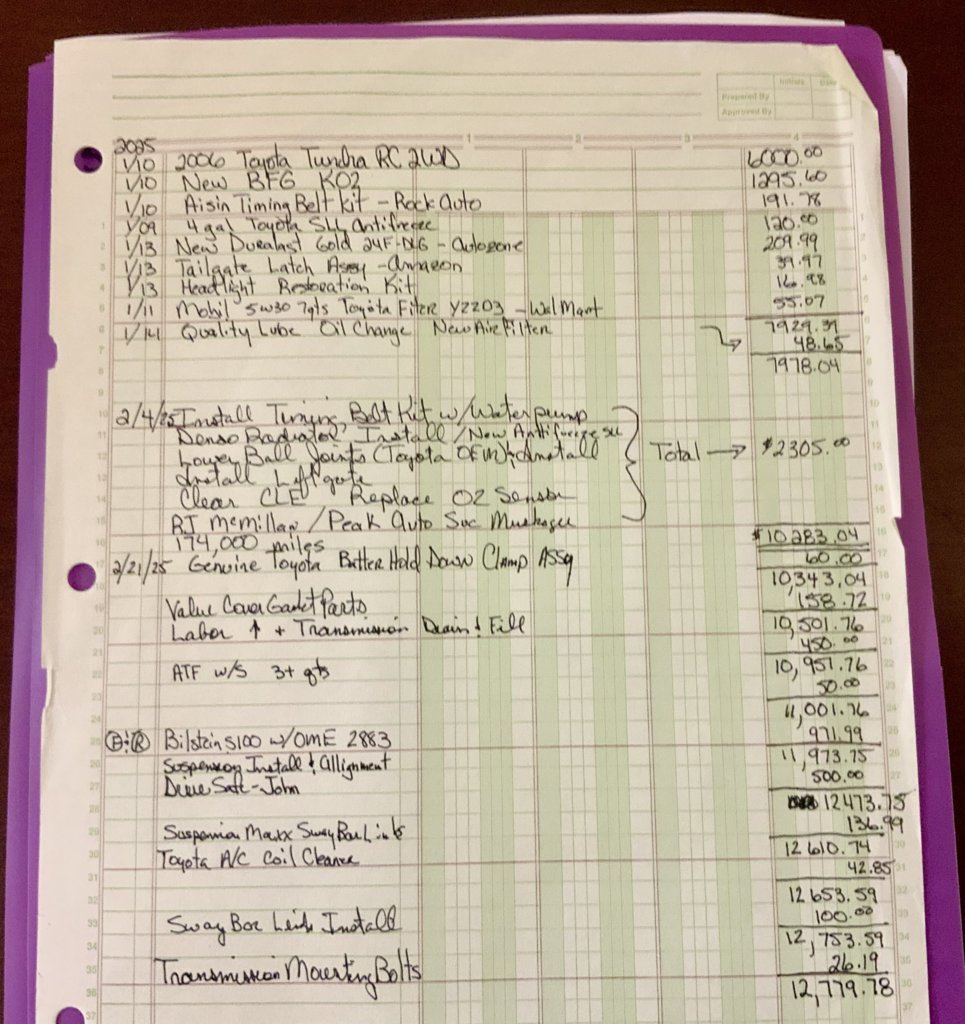 Initials Date
Prepared By
Approved By
1 2 3 4
2025
1/10 2006 Toyota Tundra RC 2WD 6000.00
1/10 New BFG KO2 1295.60
1/10 Aisin Timing Belt Kit - Rock Auto 191.78
1/09 4 gal Toyota SLL Antifreeze 120.00
1/13 New Duralast Gold 24F-DLG - Autozone 209.99
1/13 Tailgate Latch Assy - Amazon 39.97
1/13 Headlight Restoration Kit 16.98
1/11 Mobil 5w30 7qts Toyota Filter YZZ03 - WalMart 55.07
1/14 Quality Lube Oil Change New Air Filter 7929.39
48.65
7978.04
2/4/25 Install Timing Belt Kit w/Waterpump
Denso Radiator Install / New Antifreeze SLL
Lower Ball Joints (Toyota OEM) & Install Total → $2305.00
Install Liftgate
Clear CLE Replace O2 Sensor
RJ McMillan / Peak Auto Svc Muskogee
174,000 miles $10283.04
2/21/25 Genuine Toyota Batter Hold Down Clamp Assy 60.00
10,343.04
Valve Cover Gasket Parts 158.72
Labor ↑ + Transmission Drain & Fill 10,501.76
450.00
ATF w/s 3+ qts 10,951.76
50.00
11,001.76
F & R Bilstein 5100 w/OME 2883 971.99
Suspension Install & Allignment 11,973.75
John 500.00
12473.75
Suspension Maxx Sway Bar Links 136.99
Toyota A/C Coil Cleaner 12610.74
42.85
12653.59
Sway Bar Link Install 100.00
12,753.59
Transmission Mounting Bolts 26.19
12,779.78